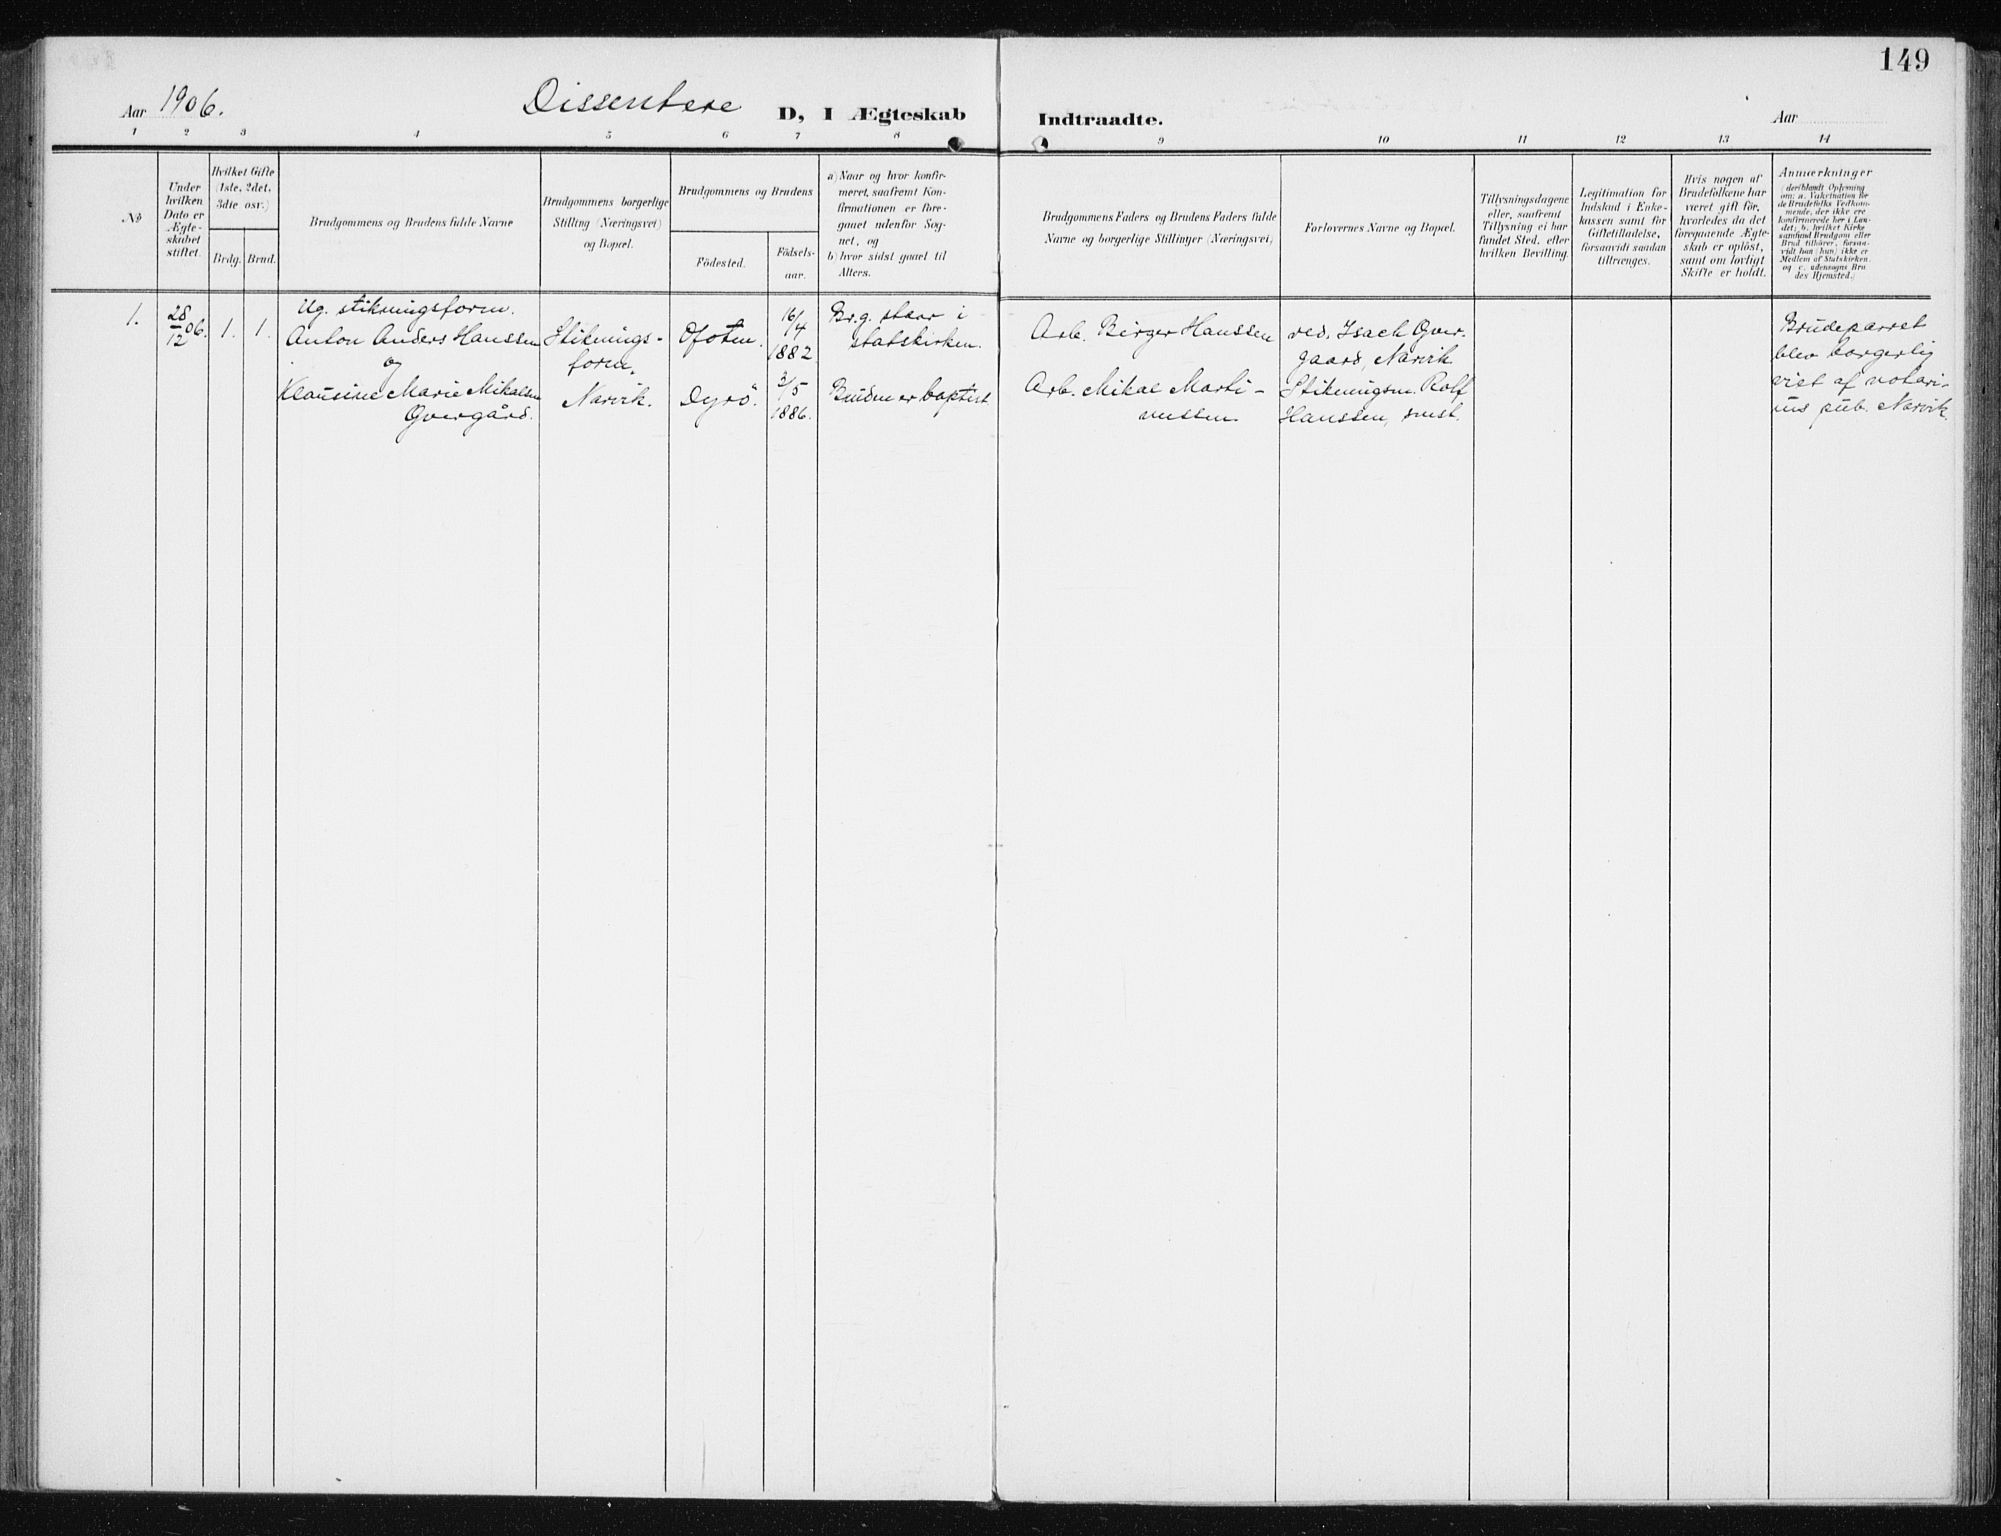 149
Aar 1906. Dissentere D, I Ægteskab Indtraadte. Aar
1 2 3 4 5 6 7 8 9 10 11 12 13 14
No
Under
hvilken
Dato er
Ægte-
skabet
stiftet.
Hvilket Gifte
(1ste, 2det,
3die osv.)
Brdg. Brud.
Brudgommens og Brudens fulde Navne
Brudgommens borgerlige
Stilling (Næringsvei)
og Bopæl.
Brudgommens og Brudens
Födested.
Födsels-
aar.
a) Naar og hvor konfir-
meret, saafremt Kon-
firmationen er fore-
gaaet udenfor Sog-
net, og
b) hvor sidst gaaet til
Alters.
Brudgommens Faders og Brudens Faders fulde
Navne og borgerlige Stillinger (Næringsvei)
Forlovernes Navne og Bopæl.
Tillysningsdagene
eller, saafremt
Tillysning ei har
fundet Sted, efter
hvilken Bevilling.
Legitimation for
Indskud i Enke-
kassen samt for
Giftetilladelse,
forsaavidt saadan
tiltrænges.
Hvis nogen af
Brudefolkene har
været gift för,
hvorledes da det
foregaaende Ægte-
skab er oplöst,
samt om lovligt
Skifte er holdt.
Anmærkninger
(deriblandt Oplysning
om: a. Vakcination for
de Brudefolks Vedkom-
mende, der ikke ere
konfirmerede her i Lan-
det; b. hvilket Kirke-
samfund Brudgom eller
Brud tilhörer, forsaa-
vidt han (hun) ikke er
Medlem af Statskirken,
og c. udensogns Bru-
des Hjemsted.)
1.
28/12 06.
1. 1.
Ug. stikningsform.
Anton Anders Hanssen
og
Klausine Marie Mikalsen
Gvergård.
Stiknings-
form.
Narvik.
Ofoten.
Dyrö.
16/4
1882
3/5
1886.
Br.g. staar i
statskirken.
Bruden er baptist.
Arb. Birger Hanssen
Arb. Mikal Marti-
nussen
ved. Isach Gver-
gaard, Narvik
Stikningsm. Rolf
Hanssen, smst.
Brudeparret
blev borgerlig
viet af notari-
us pub. Narvik.